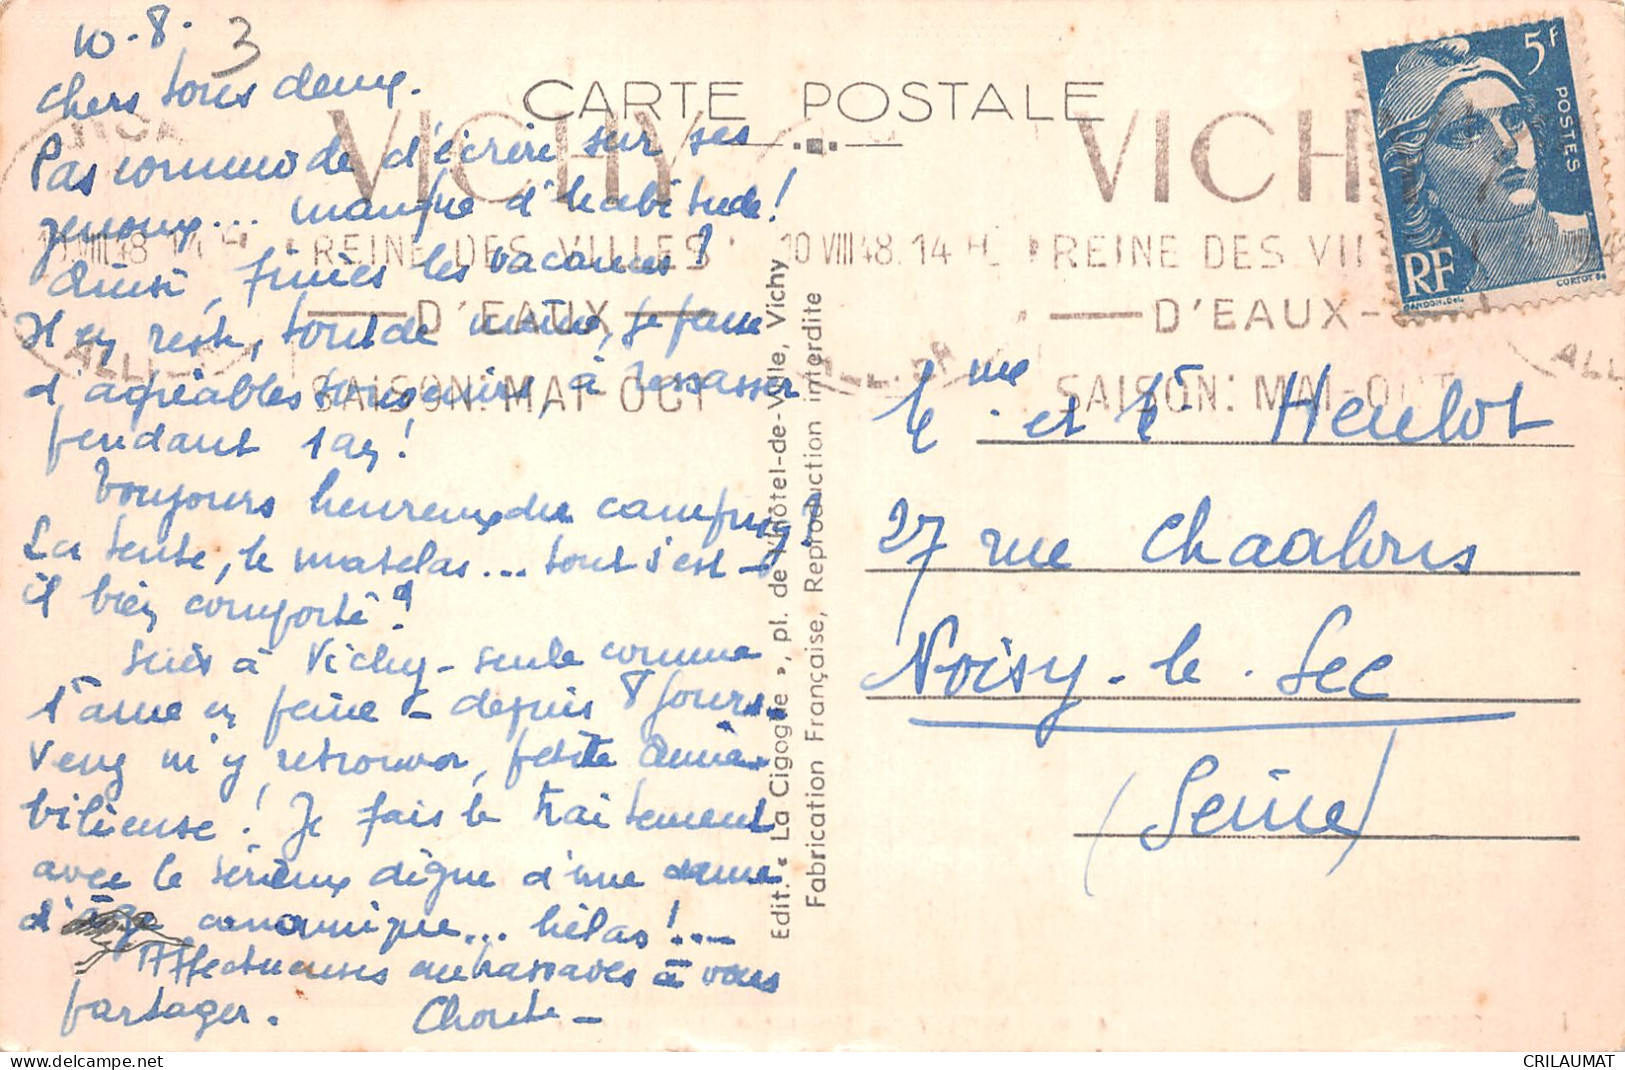 10-8-
3
Chers tous deux.
Pas commode d'écrire sur ses
genoux... manque d'habitude!
Ainsi, finies les vacances?
Il en reste, tout de même, je pense
d'agréables souvenirs, à ressasser
pendant 1 an!
Toujours heureux du camping?
La tente, le matelas... tout s'est-
il bien comporté?
Suis à Vichy - seule comme
1 âme en peine - depuis 8 jours.
Venez m'y retrouver, petite Amie
bilieuse! Je fais le traitement
avec le sérieux digne d'une dame
d'âge canonique... hélas!...
Affectueuses embrassades à vous
partager. Choute -
CARTE POSTALE
VICHY
REINE DES VILLES
D'EAUX
SAISON: MAI-OCT
10 VIII 48. 14 H
VICHY
REINE DES VIL
D'EAUX
SAISON: MAI-OCT
ALLIER
5F
POSTES
RF
GANDON.Del.
CORTOT
Edit. « La Cigogne », pl. de l'Hôtel-de-Ville, Vichy
Fabrication Française, Reproduction interdite
Mme et Mr Heulot
27 rue Chaalons
Noisy-le-Sec
(Seine)
CRILAUMAT